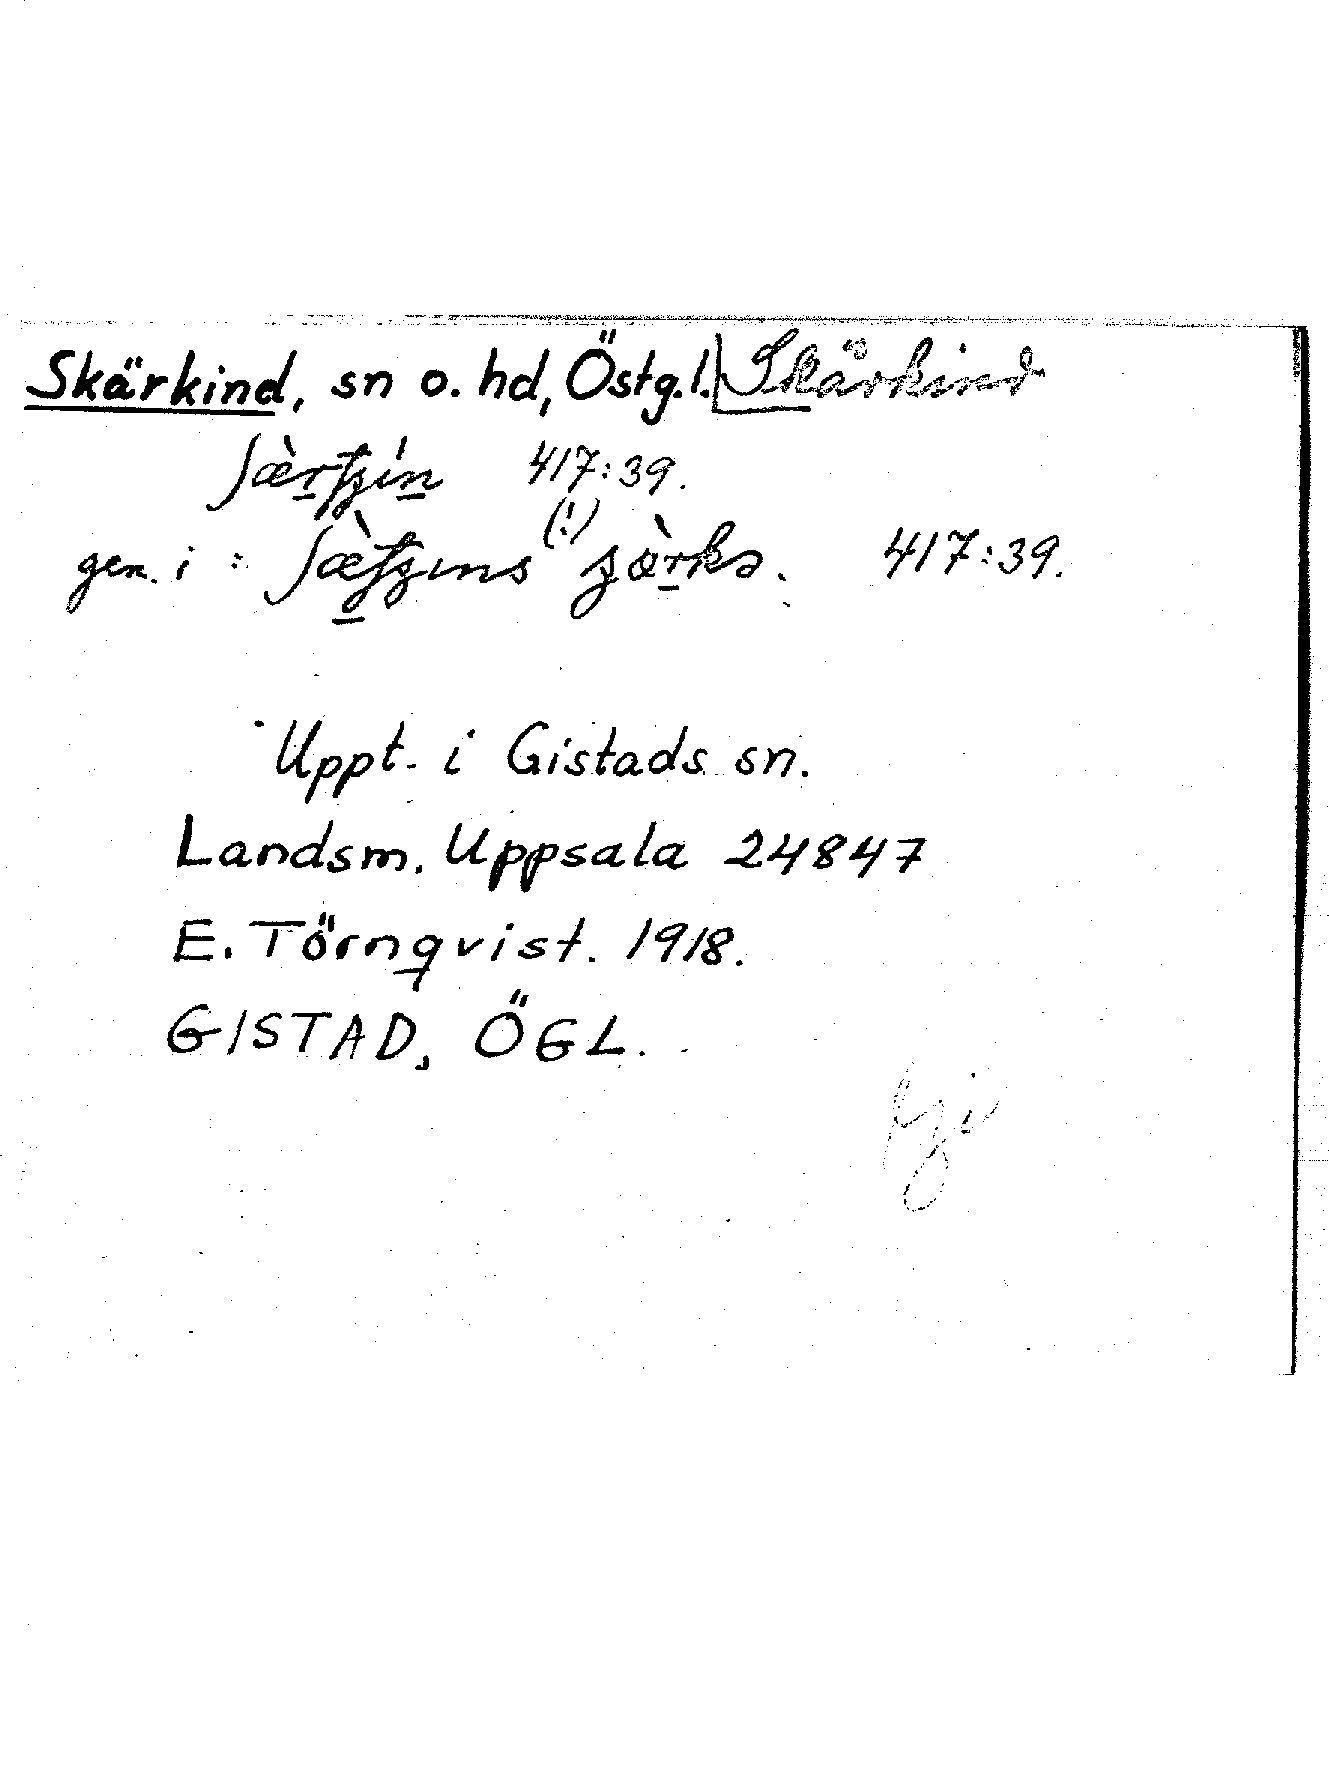 Skärkind, sn o. hd, Östg.l. Skärkind
417:39.
gen. i : (!) 417:39.
Uppt. i Gistads sn.
Landsm. Uppsala 24847
E. Törnqvist. 1918.
GISTAD, ÖGL.